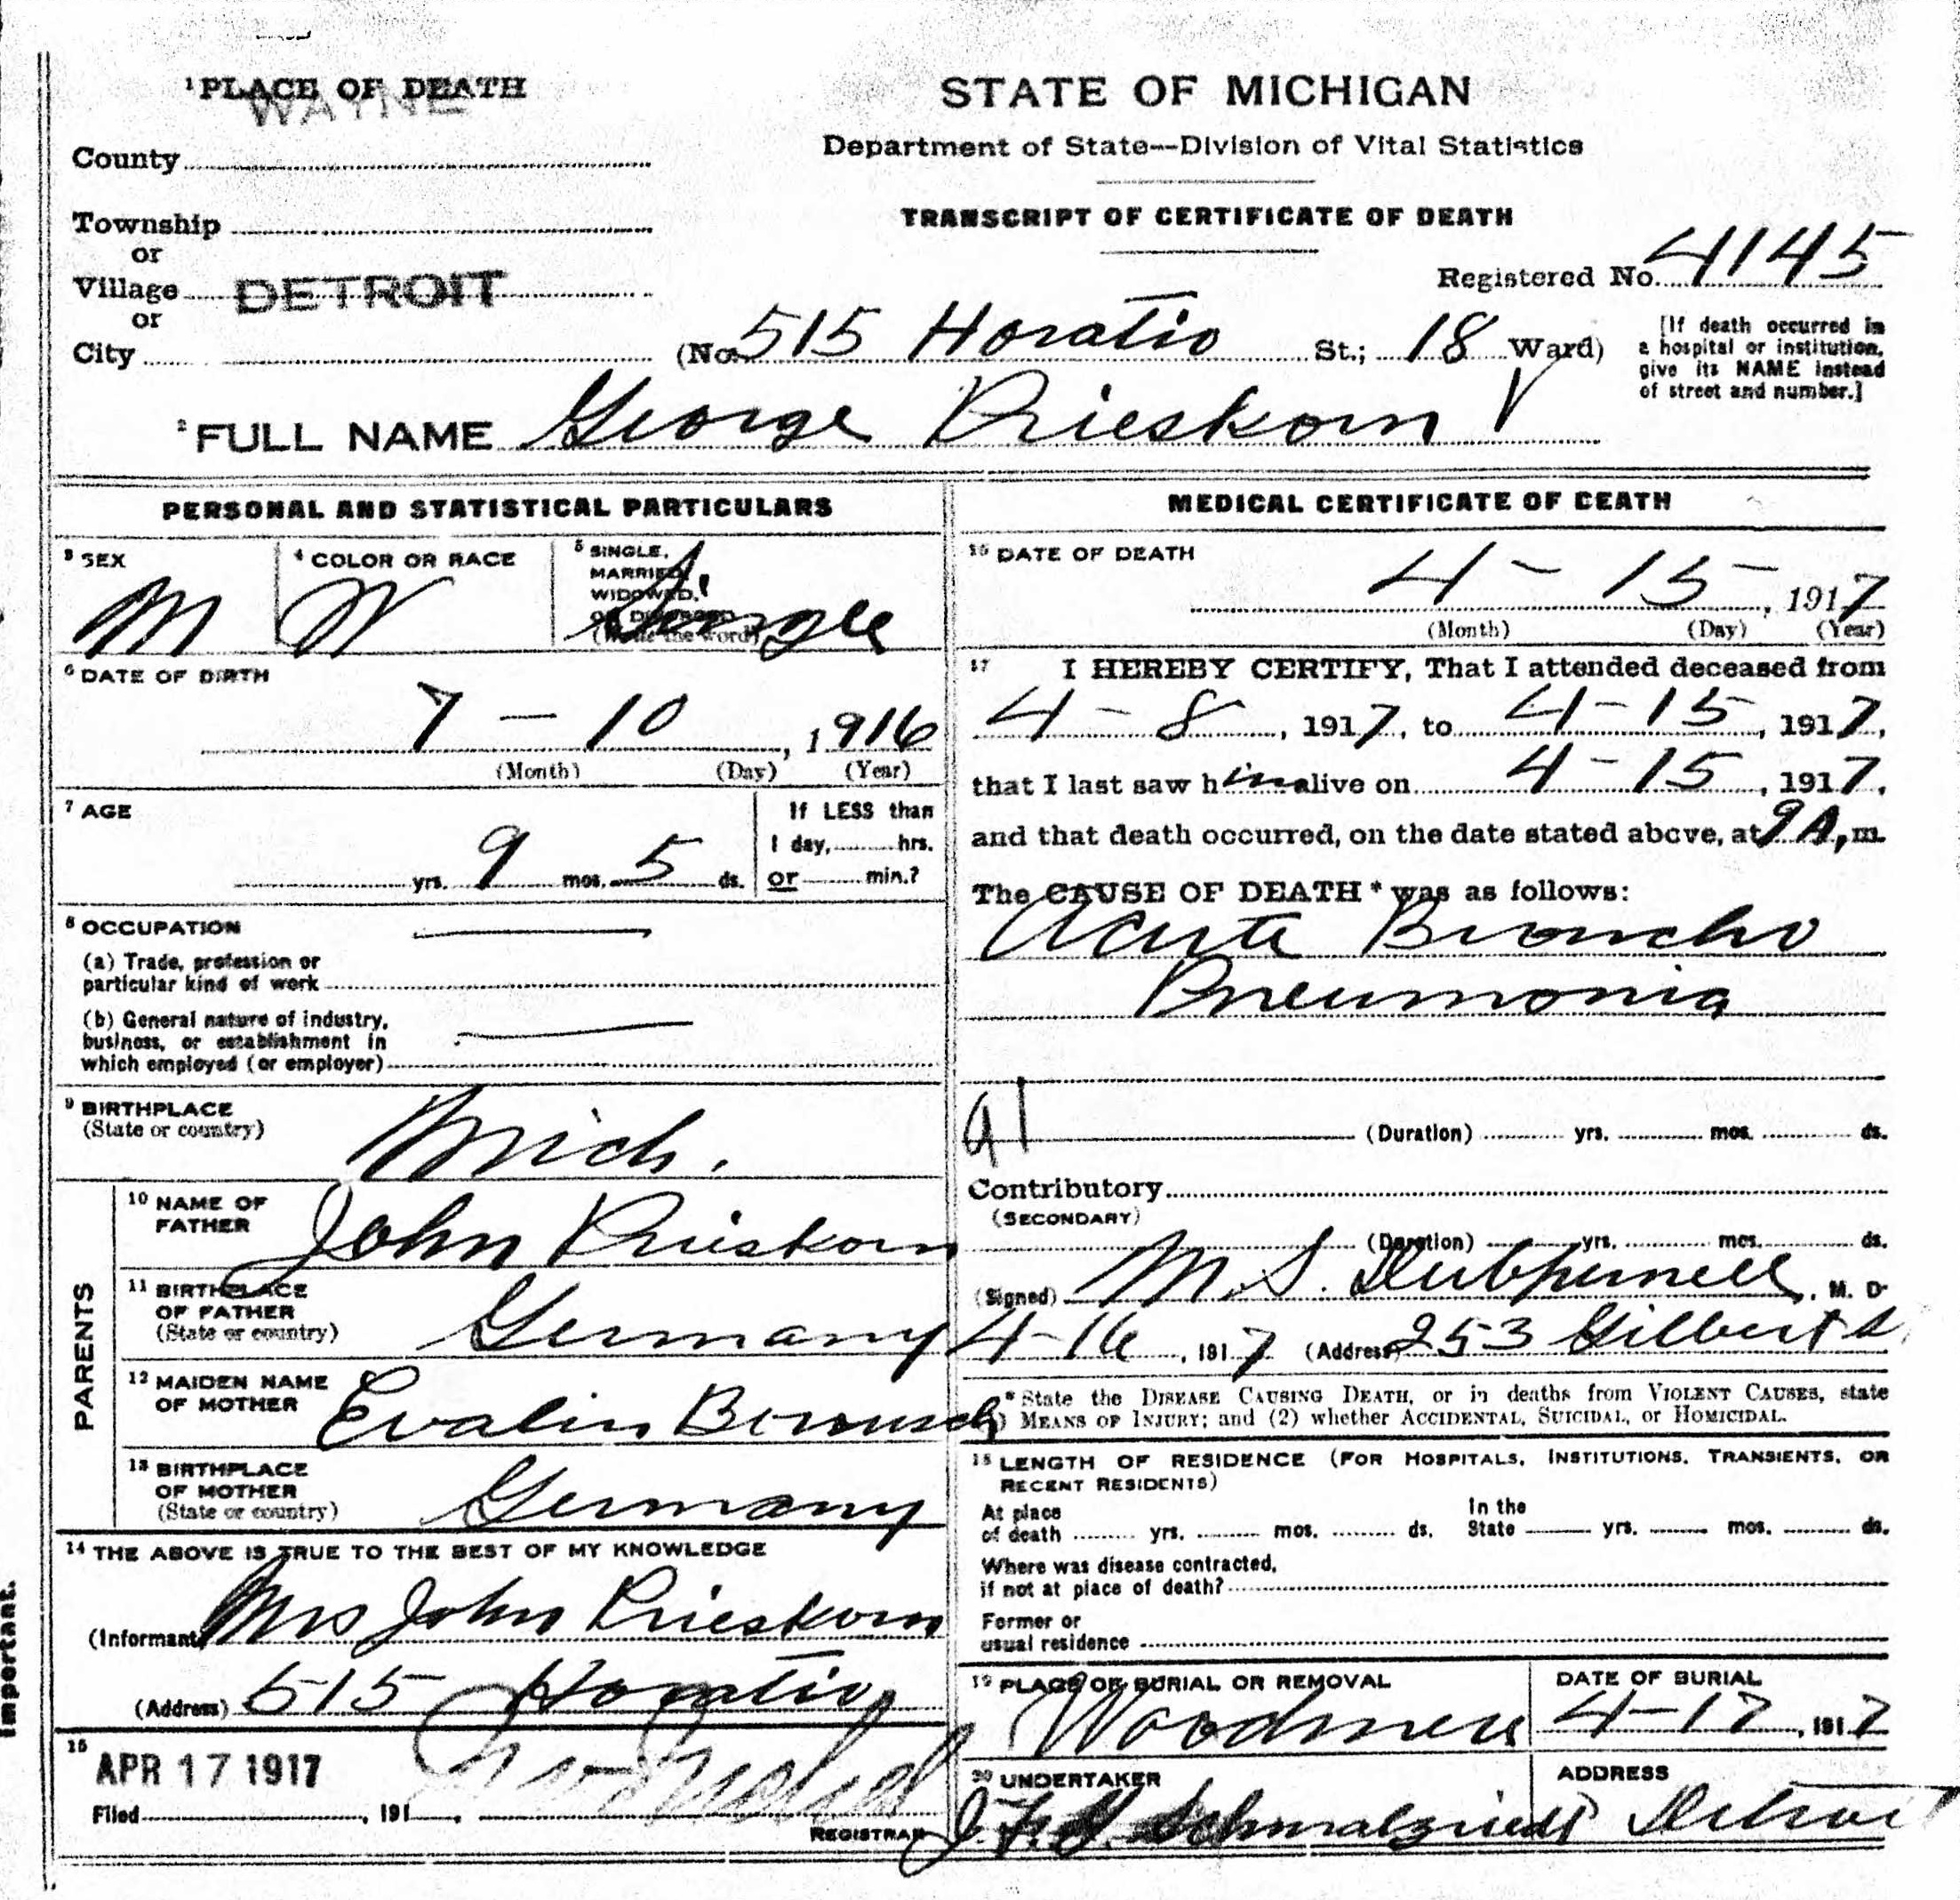 ¹PLACE OF DEATH
WAYNE
County
Township
or
Village DETROIT
or
City
STATE OF MICHIGAN
Department of State—Division of Vital Statistics
TRANSCRIPT OF CERTIFICATE OF DEATH
Registered No. 4145
(No. 515 Horatio St.; 18 Ward)
[If death occurred in
a hospital or institution,
give its NAME instead
of street and number.]
²FULL NAME George Prieskorn
PERSONAL AND STATISTICAL PARTICULARS
³ SEX
M
⁴ COLOR OR RACE
W
⁵ SINGLE,
MARRIED,
WIDOWED,
OR DIVORCED
(Write the word)
Single
⁶ DATE OF BIRTH
7 — 10, 1916
(Month) (Day) (Year)
⁷ AGE
yrs. 9 mos. 5 ds.
If LESS than
1 day, hrs.
or min.?
⁸ OCCUPATION
(a) Trade, profession or
particular kind of work
(b) General nature of industry,
business, or establishment in
which employed (or employer)
⁹ BIRTHPLACE
(State or country)
Mich.
PARENTS
¹⁰ NAME OF
FATHER
John Prieskorn
¹¹ BIRTHPLACE
OF FATHER
(State or country)
Germany
¹² MAIDEN NAME
OF MOTHER
Evalin
¹³ BIRTHPLACE
OF MOTHER
(State or country)
Germany
¹⁴ THE ABOVE IS TRUE TO THE BEST OF MY KNOWLEDGE
(Informant) Mrs John Prieskorn
(Address) 515 Horatio
¹⁵
APR 17 1917
Filed, 191,
REGISTRAR
Important.
MEDICAL CERTIFICATE OF DEATH
¹⁶ DATE OF DEATH
4 — 15, 1917
(Month) (Day) (Year)
¹⁷ I HEREBY CERTIFY, That I attended deceased from
4 - 8, 1917, to 4 - 15, 1917,
that I last saw him alive on 4 - 15, 1917,
and that death occurred, on the date stated above, at 9 A, m.
The CAUSE OF DEATH* was as follows:
Acute Broncho
Pneumonia
91
(Duration) yrs. mos. ds.
Contributory
(SECONDARY)
(Duration) yrs. mos. ds.
(Signed) M. S. Dubpernell, M. D.
4-16, 1917 (Address) 253 Gilbert
*State the DISEASE CAUSING DEATH, or in deaths from VIOLENT CAUSES, state
MEANS OF INJURY; and (2) whether ACCIDENTAL, SUICIDAL, or HOMICIDAL.
¹⁸ LENGTH OF RESIDENCE (FOR HOSPITALS, INSTITUTIONS, TRANSIENTS, OR
RECENT RESIDENTS)
At place
of death yrs. mos. ds.
In the
State yrs. mos. ds.
Where was disease contracted,
if not at place of death?
Former or
usual residence
¹⁹ PLACE OF BURIAL OR REMOVAL
Woodmere
DATE OF BURIAL
4-17, 1917
²⁰ UNDERTAKER
Schmalzriedt
ADDRESS
Detroit